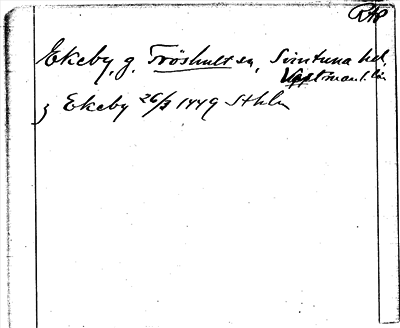 RAP
Ekeby, g. Tröshult sn, Simtuna hd,
Västmanl. län
z Ekeby 26/3 1449 Sthlm